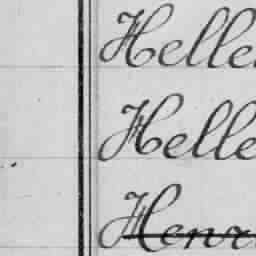 Helle
Helle
Henr